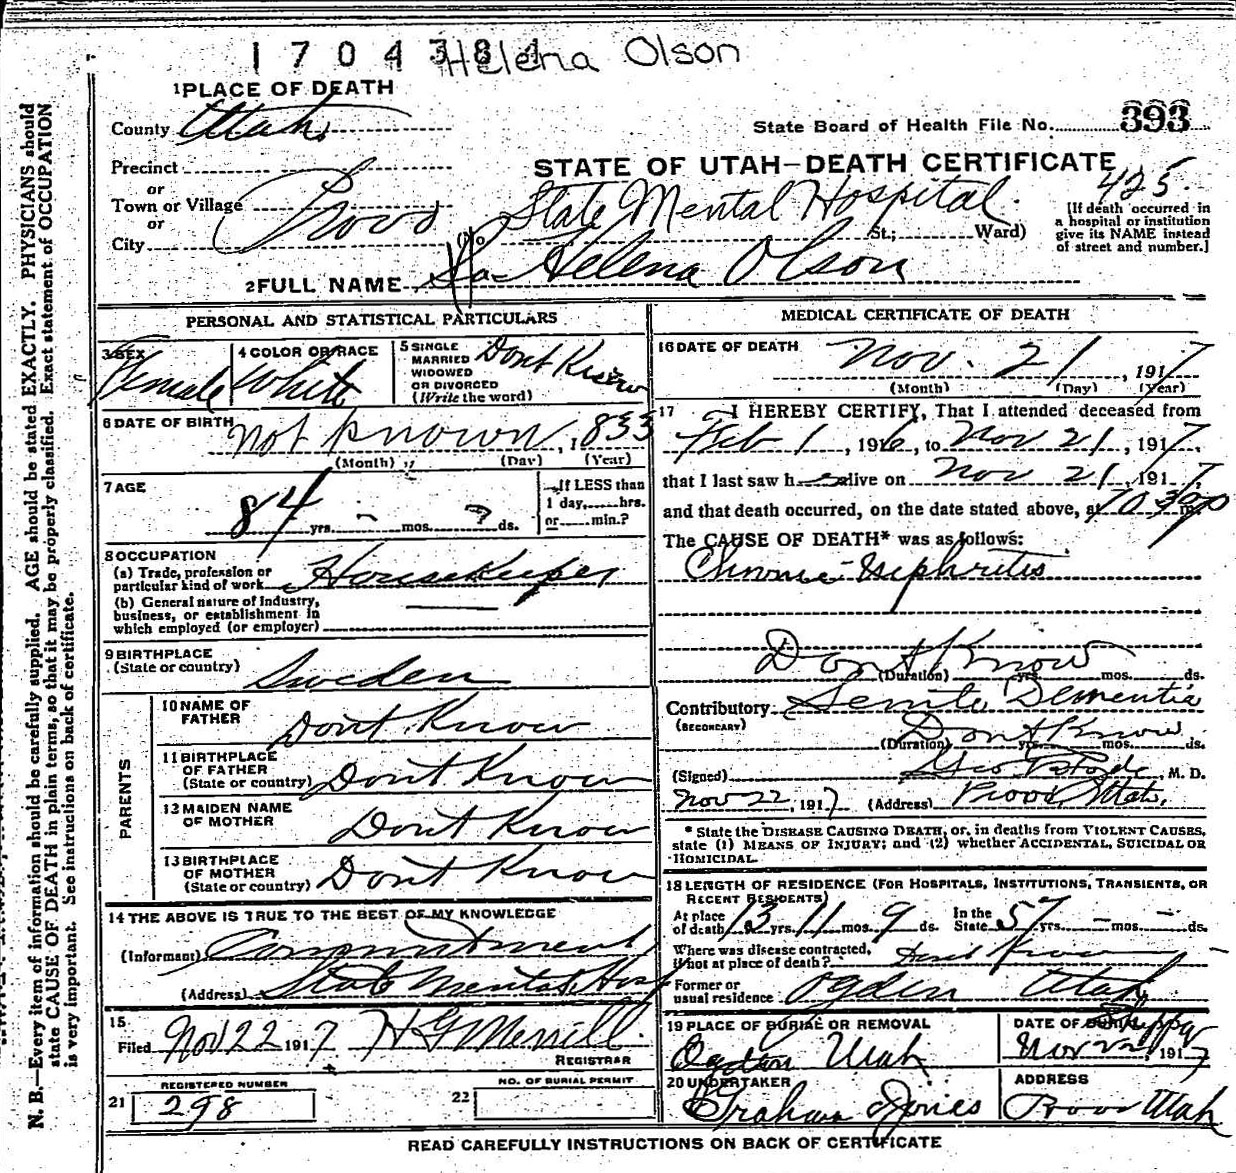 1704384
Helena Olson
1 PLACE OF DEATH
County Utah
State Board of Health File No. 393
Precinct
STATE OF UTAH—DEATH CERTIFICATE
or
Town or Village Provo
State Mental Hospital 425
or
City
St.; Ward)
[If death occurred in
a hospital or institution
give its NAME instead
of street and number.]
2 FULL NAME Helena Olson
PERSONAL AND STATISTICAL PARTICULARS
3 SEX Female
4 COLOR OR RACE White
5 SINGLE
MARRIED
WIDOWED
OR DIVORCED
(Write the word)
Dont Know
6 DATE OF BIRTH not known, 1833
(Month) (Day) (Year)
7 AGE
84 yrs. - mos. ? ds.
If LESS than
1 day, hrs.
or min.?
8 OCCUPATION
(a) Trade, profession or
particular kind of work Housekeeper
(b) General nature of industry,
business, or establishment in
which employed (or employer)
9 BIRTHPLACE
(State or country) Sweden
PARENTS
10 NAME OF
FATHER Dont Know
11 BIRTHPLACE
OF FATHER
(State or country) Dont Know
12 MAIDEN NAME
OF MOTHER Dont Know
13 BIRTHPLACE
OF MOTHER
(State or country) Dont Know
14 THE ABOVE IS TRUE TO THE BEST OF MY KNOWLEDGE
(Informant) Commitment
(Address) State Mental Hosp
15
Filed Nov 22 1917 H G Merrill
REGISTRAR
REGISTERED NUMBER
21 298
NO. OF BURIAL PERMIT
22
MEDICAL CERTIFICATE OF DEATH
16 DATE OF DEATH Nov. 21, 1917
(Month) (Day) (Year)
17 I HEREBY CERTIFY, That I attended deceased from
Feb 1, 1916, to Nov 21, 1917,
that I last saw h alive on Nov 21, 1917,
and that death occurred, on the date stated above, at 10 30 p m.
The CAUSE OF DEATH* was as follows:
Chronic Nephritis
Dont Know
(Duration) yrs. mos. ds.
Contributory Senile Dementia
(SECONDARY)
Dont Know
(Duration) yrs. mos. ds.
(Signed) Geo , M. D.
Nov 22, 1917 (Address) Provo Utah.
* State the DISEASE CAUSING DEATH, or, in deaths from VIOLENT CAUSES,
state (1) MEANS OF INJURY; and (2) whether ACCIDENTAL, SUICIDAL OR
HOMICIDAL.
18 LENGTH OF RESIDENCE (FOR HOSPITALS, INSTITUTIONS, TRANSIENTS, OR
RECENT RESIDENTS)
At place
of death 13 yrs. 11 mos. 9 ds.
In the
State 57 yrs. - mos. - ds.
Where was disease contracted,
if not at place of death? Dont Know
Former or
usual residence Ogden Utah
19 PLACE OF BURIAL OR REMOVAL
Ogden Utah
DATE OF BURIAL
Nov 22, 1917
20 UNDERTAKER
Graham & Jones
ADDRESS
Provo Utah
READ CAREFULLY INSTRUCTIONS ON BACK OF CERTIFICATE
N. B.—Every item of information should be carefully supplied. AGE should be stated EXACTLY. PHYSICIANS should
state CAUSE OF DEATH in plain terms, so that it may be properly classified. Exact statement of OCCUPATION
is very important. See instructions on back of certificate.